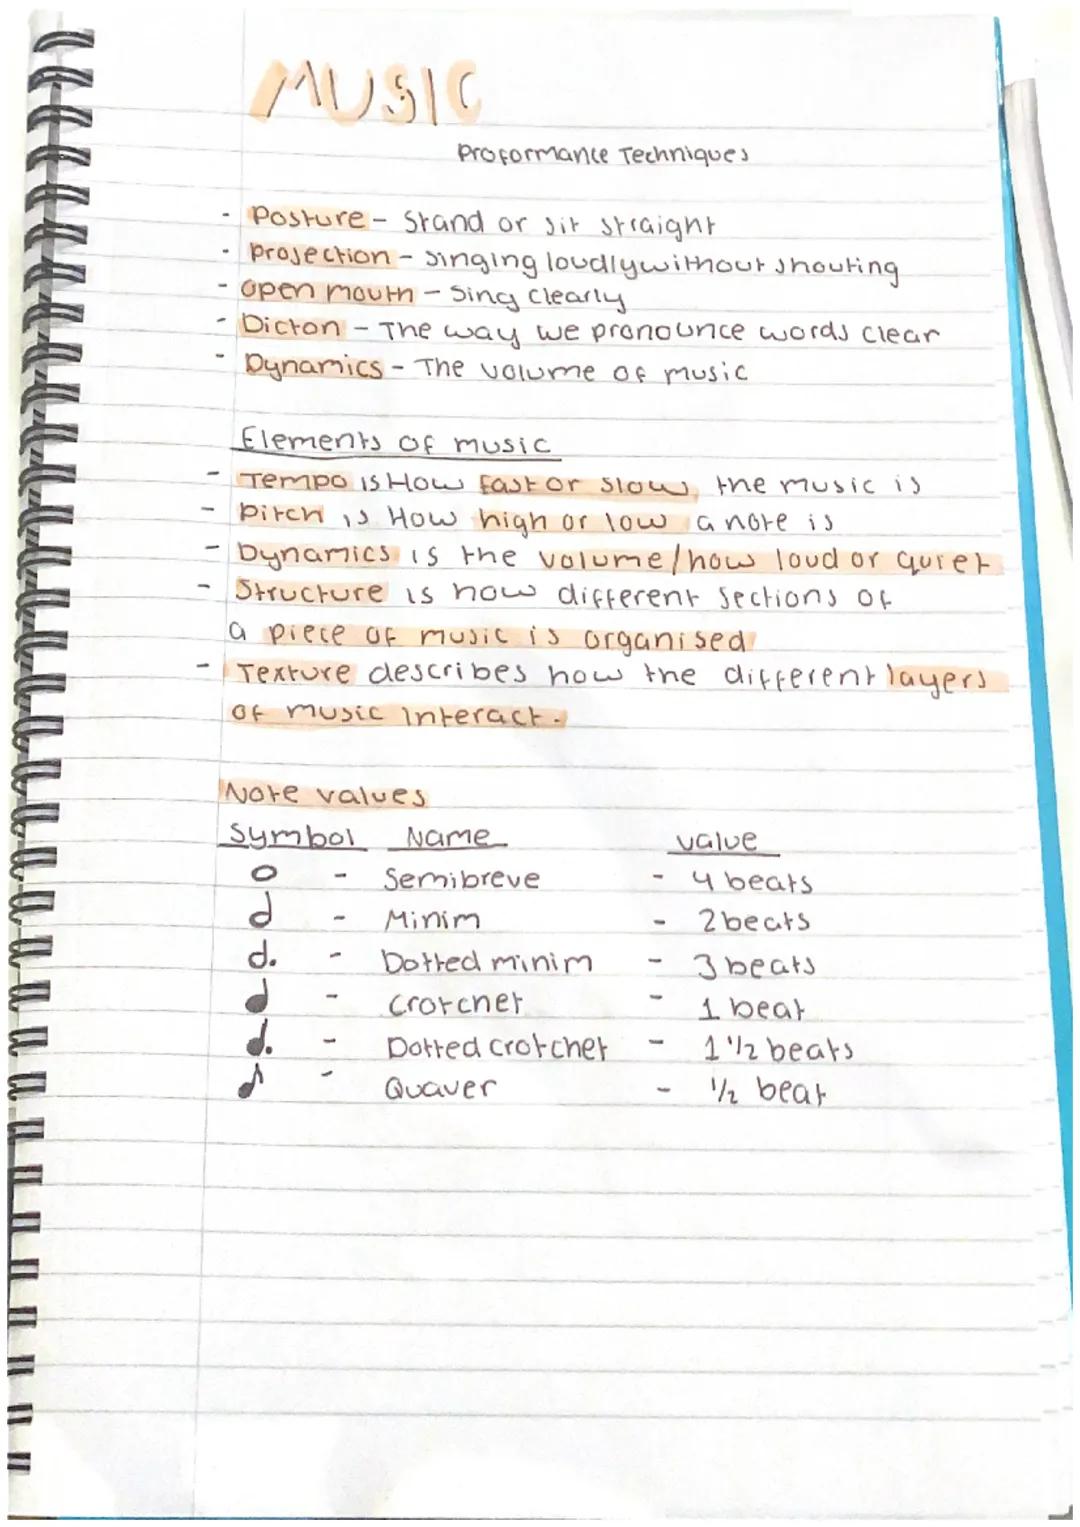 MUSIC
Proformance Techniques
- Posture - Stand or sit straight
- Projection - singing loudly without shouting
- Open mouth - Sing clearly
- Dicton - The way we pronounce words clear
- Dynamics - The volume of music
Elements of music
- Tempo is How fast or slow the music is
- Pitch is How high or low a note is
- Dynamics is the volume/how loud or quiet
- Structure is how different sections of
a piece of music is organised
- Texture describes how the different layers
of music interact.
Note values
Symbol Name value
- Semibreve - 4 beats
- Minim - 2 beats
- Dotted minim - 3 beats
- crotchet - 1 beat
- Dotted crotchet - 1 1/2 beats
- Quaver - 1/2 beat